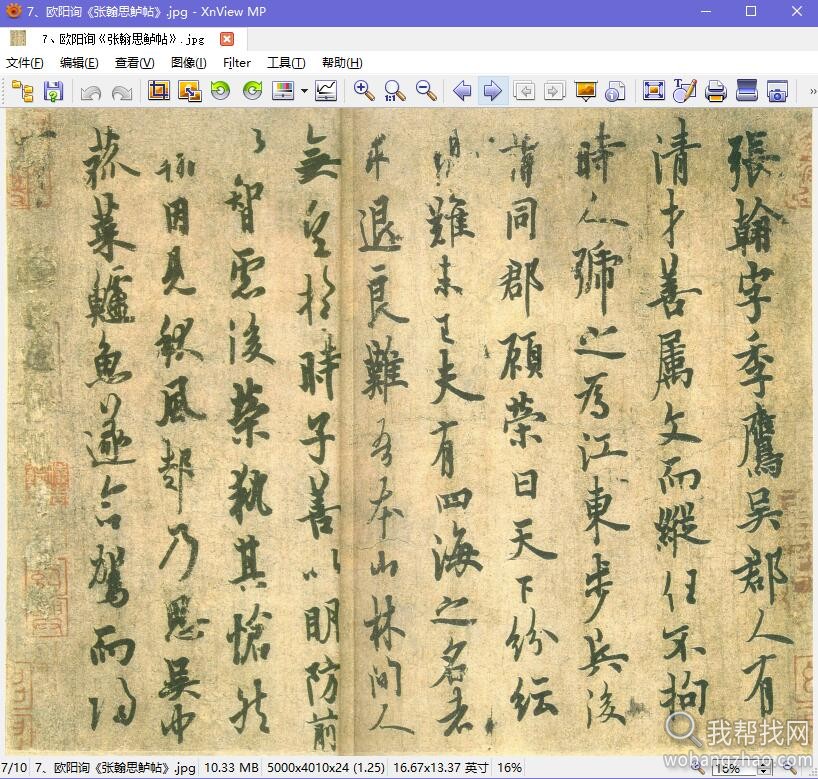 7、欧阳询《张翰思鲈帖》.jpg - XnView MP
7、欧阳询《张翰思鲈帖》.jpg
文件(F) 编辑(E) 查看(V) 图像(I) Filter 工具(T) 帮助(H)
張翰字季鷹吳郡人有
清才善属文而縱任不拘
時人號之為江東步兵後
謂同郡顧荣曰天下紛紜
難未已夫有四海之名者
求退良難吾本山林間人
無望於時子善以明防前
智慮後榮執其愴然
翰因見秋風起乃思吳中
菰菜鱸魚遂命駕而歸
我帮找网
wobangzhao.com
7/10 7、欧阳询《张翰思鲈帖》.jpg 10.33 MB 5000x4010x24 (1.25) 16.67x13.37 英寸 16%
16%